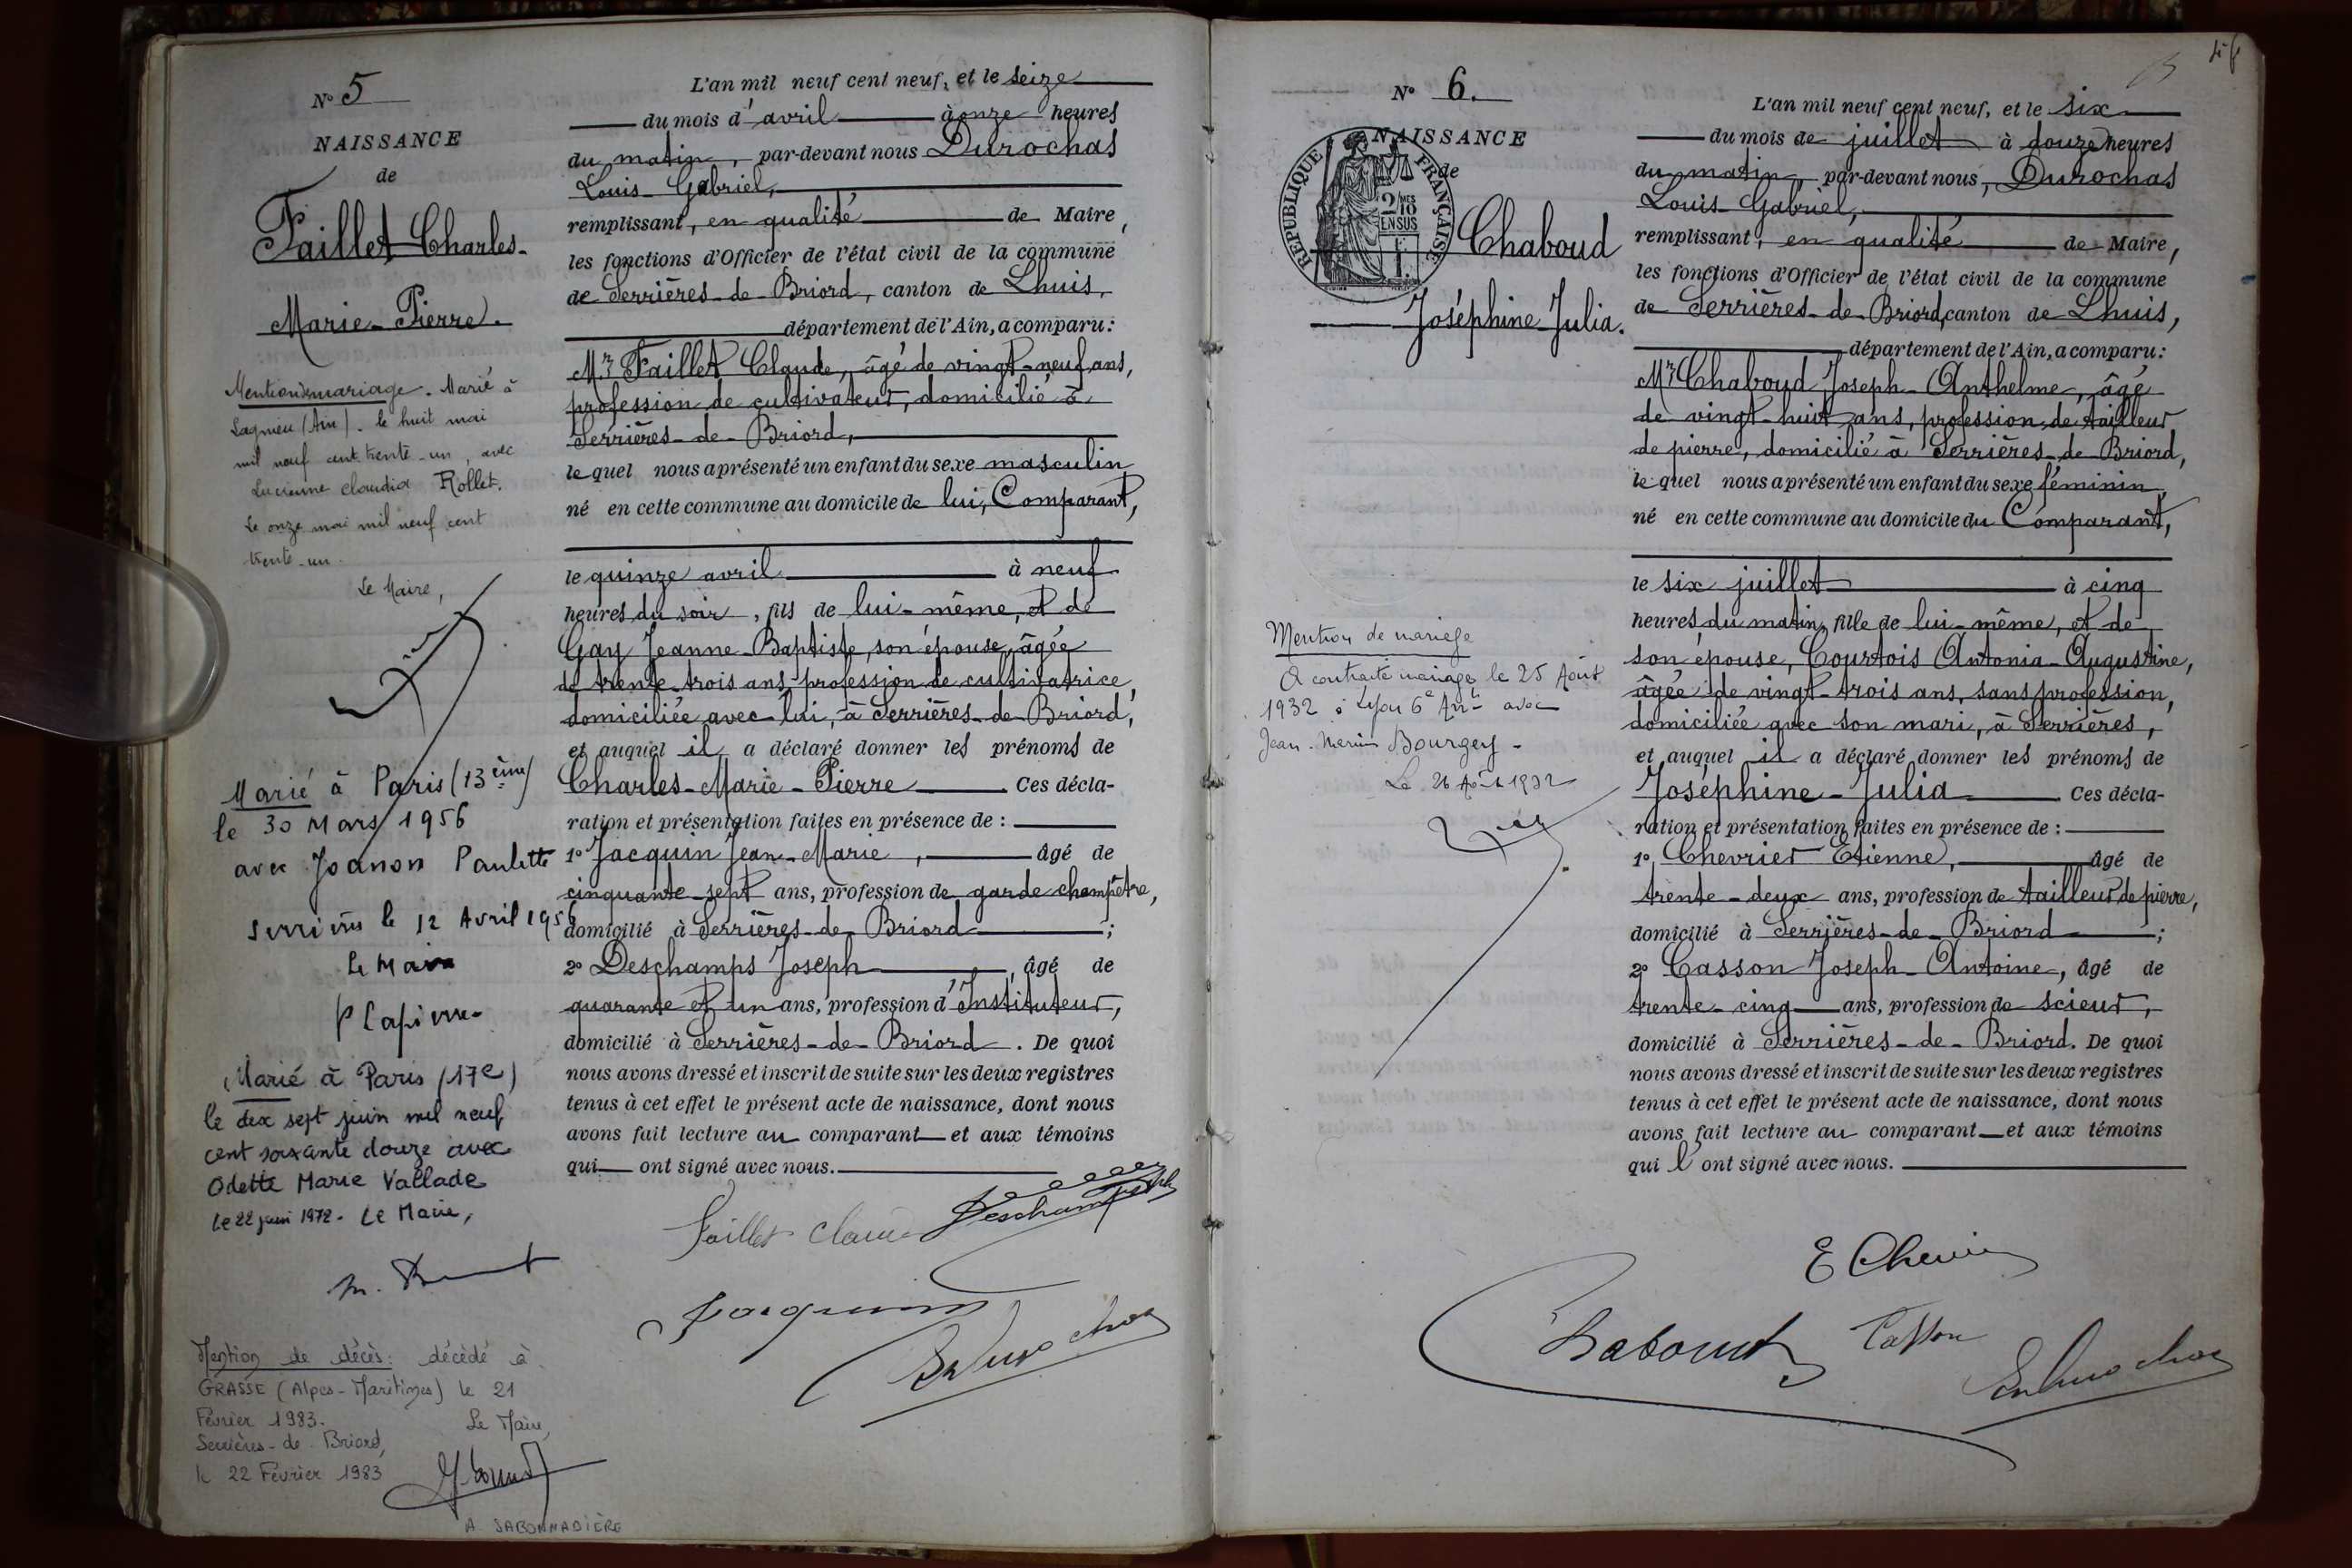 N° 5
NAISSANCE
de
Faillet Charles-
Marie-Pierre.
Mention de mariage. Marié à
Lagnieu (Ain). le huit mai
mil neuf cent trente-un, avec
Lucienne Claudia Rollet.
Le onze mai mil neuf cent
trente-un.
Le Maire,
Marié à Paris (13ème)
le 30 Mars 1956
avec Joanon Paulette
Serrières le 12 Avril 1956
Le Maire
P Lapierre
Marié à Paris (17e)
le dix sept juin mil neuf
cent soixante douze avec
Odette Marie Vallade
le 22 juin 1972. Le Maire,
Mention de décès: décédé à
GRASSE (Alpes-Maritimes) le 21
Février 1983.
Le Maire,
Serrières-de-Briord,
le 22 Février 1983
A. SABONNADIÈRE
L'an mil neuf cent neuf, et le seize
du mois d'avril à onze heures
du matin, par-devant nous Durochas
Louis-Gabriel,
remplissant, en qualité de Maire,
les fonctions d'Officier de l'état civil de la commune
de Serrières-de-Briord, canton de Lhuis,
département de l'Ain, a comparu:
Mr Faillet Claude, âgé de vingt-neuf ans,
profession de cultivateur, domicilié à
Serrières-de-Briord,
lequel nous a présenté un enfant du sexe masculin
né en cette commune au domicile de lui, Comparant,
le quinze avril à neuf
heures du soir, fils de lui-même, et de
Gay Jeanne-Baptiste, son épouse, âgée
de trente-trois ans, profession de cultivatrice,
domiciliée avec lui, à Serrières-de-Briord,
et auquel il a déclaré donner les prénoms de
Charles-Marie-Pierre. Ces décla-
ration et présentation faites en présence de :
1° Jacquin Jean-Marie, âgé de
cinquante-sept ans, profession de garde champêtre,
domicilié à Serrières-de-Briord ;
2° Deschamps Joseph, âgé de
quarante et un ans, profession d'Instituteur,
domicilié à Serrières-de-Briord. De quoi
nous avons dressé et inscrit de suite sur les deux registres
tenus à cet effet le présent acte de naissance, dont nous
avons fait lecture au comparant et aux témoins
qui ont signé avec nous.
Faillet Claude Deschamps Joseph
Jacquin
Durochas
N° 6.
NAISSANCE
de
REPUBLIQUE FRANÇAISE
2/10 MES
EN SUS
Chaboud
Joséphine-Julia.
Mention de mariage
A contracté mariage le 25 Août
1932 à Lyon 6e Arrt avec
Jean-Marius Bourgey-
Le 26 Août 1932
L'an mil neuf cent neuf, et le six
du mois de juillet à douze heures
du matin, par-devant nous, Durochas
Louis-Gabriel,
remplissant, en qualité de Maire,
les fonctions d'Officier de l'état civil de la commune
de Serrières-de-Briord, canton de Lhuis,
département de l'Ain, a comparu:
Mr Chaboud Joseph-Anthelme, âgé
de vingt-huit ans, profession de tailleur
de pierre, domicilié à Serrières-de-Briord,
lequel nous a présenté un enfant du sexe féminin,
né en cette commune au domicile du Comparant,
le six juillet à cinq
heures du matin, fille de lui-même, et de
son épouse, Courtois Antonia-Augustine,
âgée de vingt-trois ans, sans profession,
domiciliée avec son mari, à Serrières,
et auquel il a déclaré donner les prénoms de
Joséphine-Julia. Ces décla-
ration et présentation faites en présence de :
1° Chevrier Etienne, âgé de
trente-deux ans, profession de tailleur de pierre,
domicilié à Serrières-de-Briord ;
2° Casson Joseph-Antoine, âgé de
trente-cinq ans, profession de scieur,
domicilié à Serrières-de-Briord. De quoi
nous avons dressé et inscrit de suite sur les deux registres
tenus à cet effet le présent acte de naissance, dont nous
avons fait lecture au comparant et aux témoins
qui l'ont signé avec nous.
E Chevrier
Chaboud Casson
Durochas